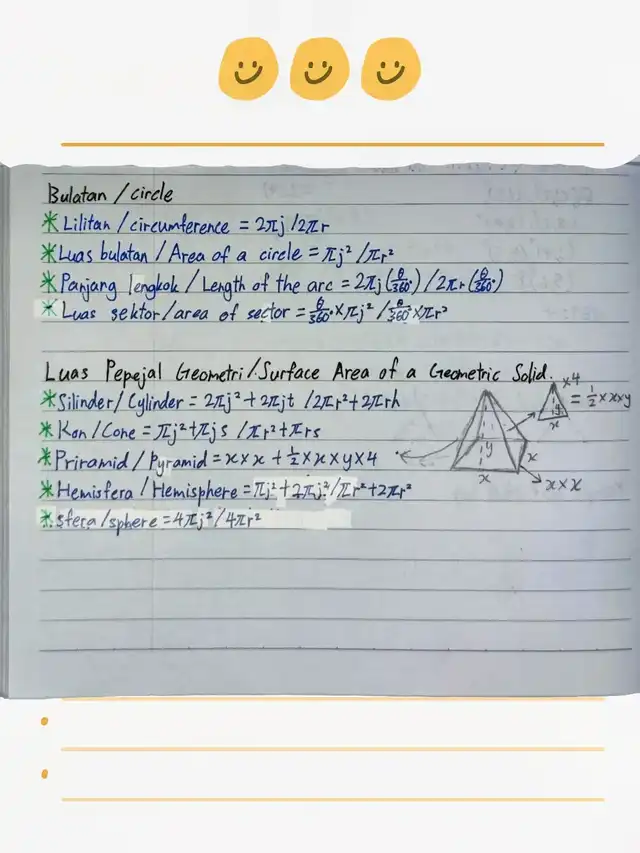 Bulatan / circle
* Lilitan / circumference = 2πj / 2πr
* Luas bulatan / Area of a circle = πj² / πr²
* Panjang lengkok / Length of the arc = 2πj (θ/360°) / 2πr (θ/360°)
* Luas sektor / area of sector = θ/360° × πj² / θ/360° × πr²
Luas Pepejal Geometri / Surface Area of a Geometric Solid.
* Silinder / Cylinder = 2πj² + 2πjt / 2πr² + 2πrh
* Kon / Cone = πj² + πjs / πr² + πrs
* Priramid / Pyramid = x × x + ½ × x × y × 4
* Hemisfera / Hemisphere = πj² + 2πj² / πr² + 2πr²
* sfera / sphere = 4πj² / 4πr²
×4
y
x
= ½ × x × y
y
x
x
x × x